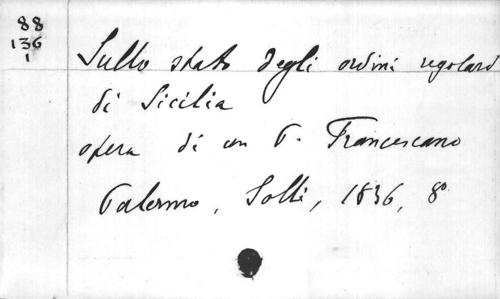 88
136
1
Sullo stato degli ordini regolari
di Sicilia
opera di un P. Francescano
Palermo, Solli, 1836, 8°